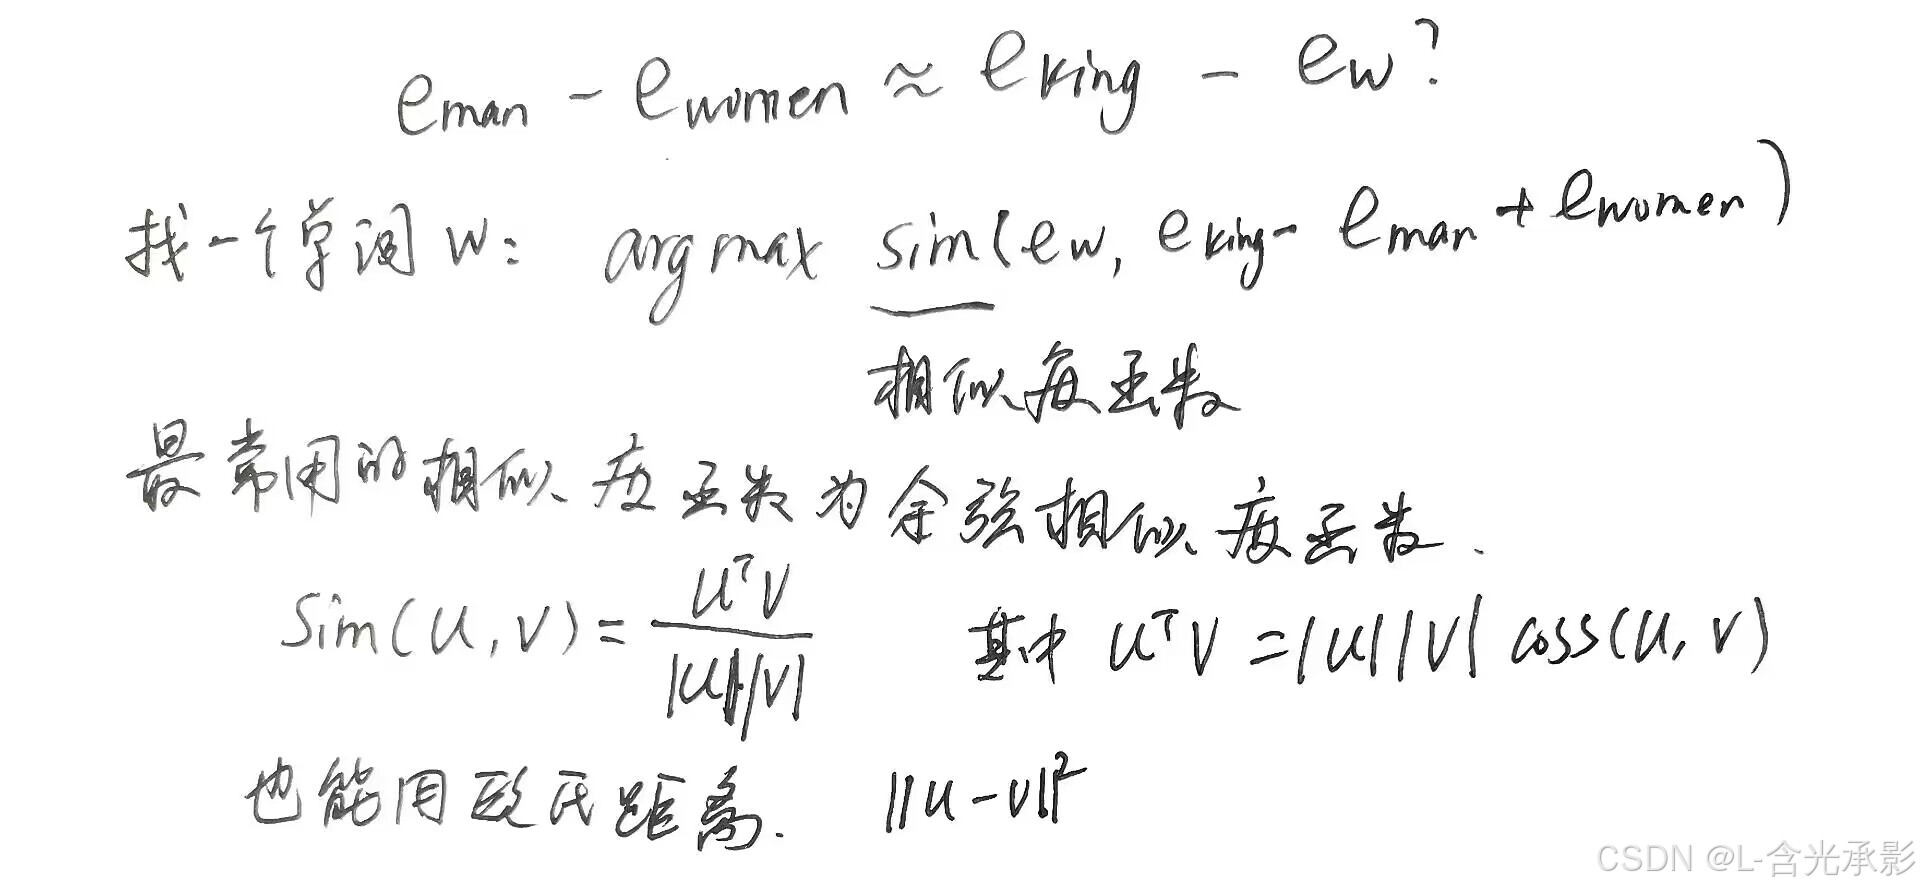 e_man - e_women ≈ e_king - e_w?
找一个单词 w: argmax sim(e_w, e_king - e_man + e_women)
相似度函数
最常用的相似度函数为余弦相似度函数.
Sim(u,v) = u^T v / |u||v| 其中 u^T v = |u||v| coss(u,v)
也能用欧氏距离. ||u-v||^2
CSDN @L-含光承影